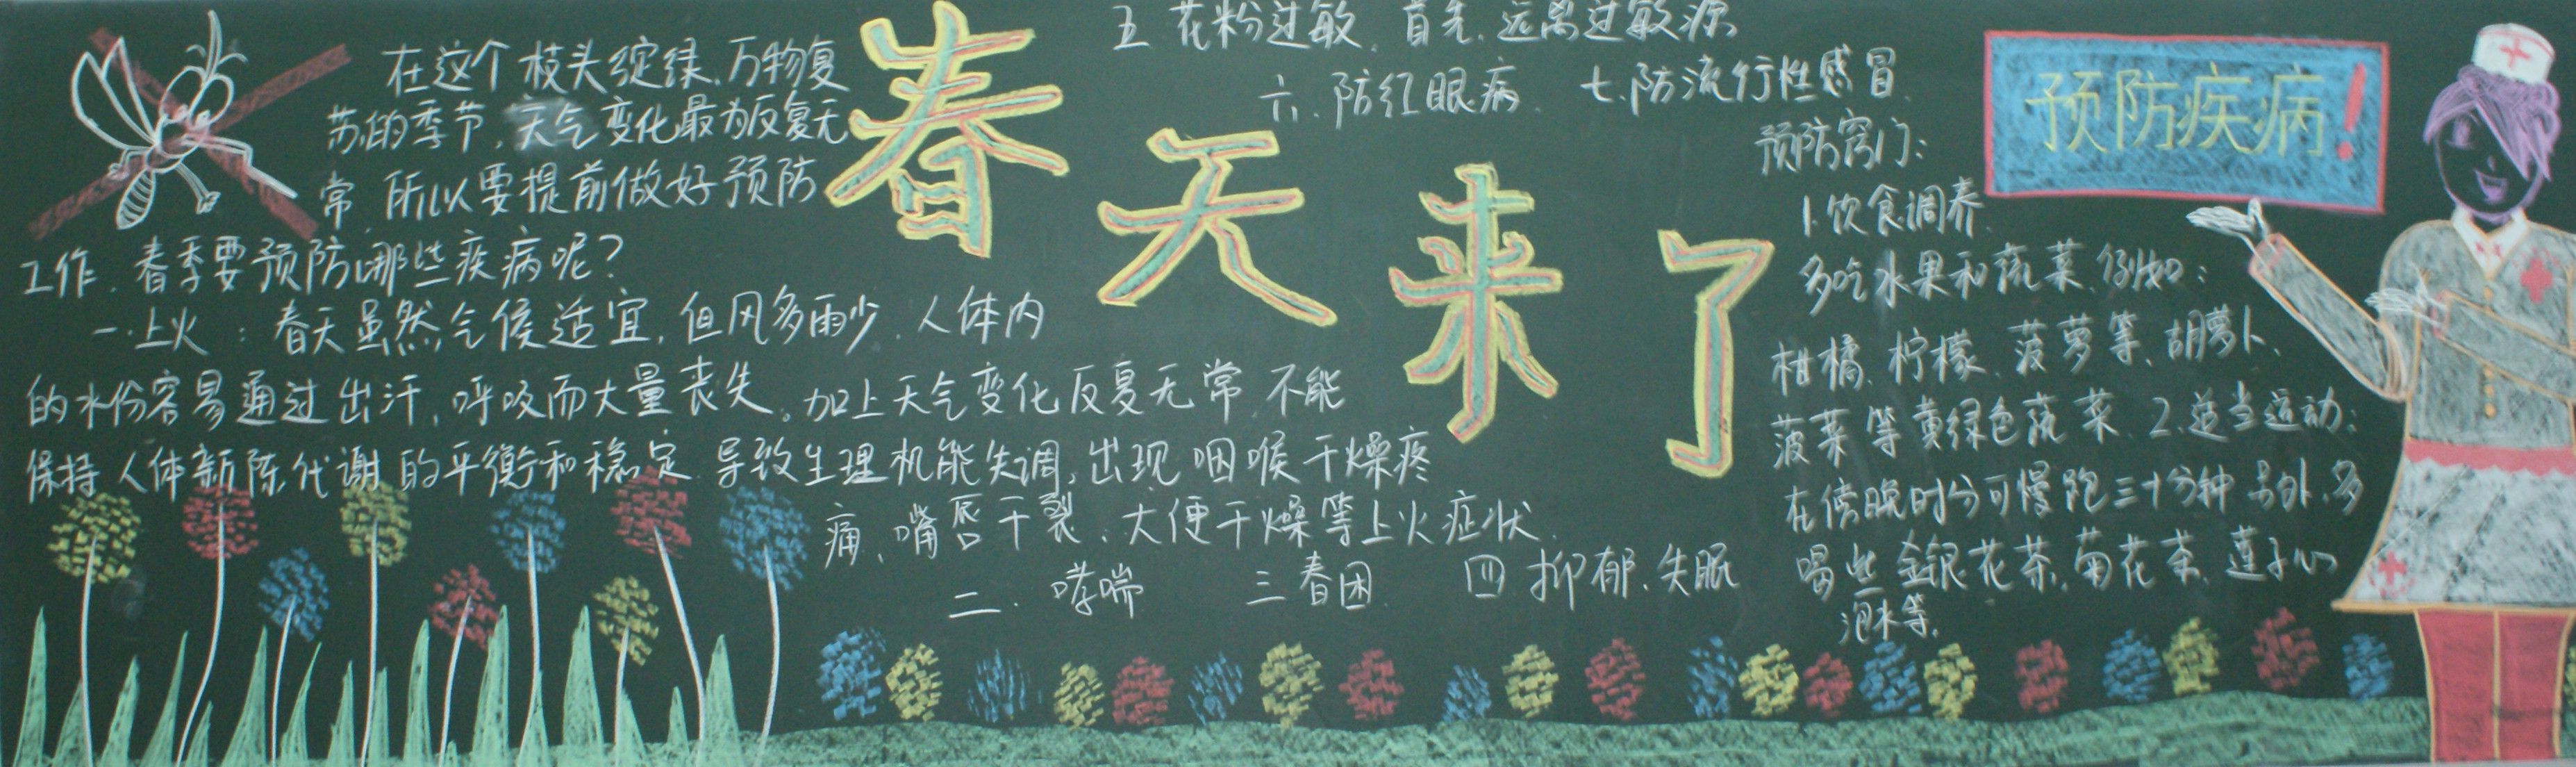 春天来了
预防疾病！
在这个枝头绽绿,万物复
苏的季节,天气变化最为反复无
常,所以要提前做好预防
工作,春季要预防哪些疾病呢?
一.上火：春天虽然气候适宜,但风多雨少,人体内
的水份容易通过出汗,呼吸而大量丧失。加上天气变化反复无常,不能
保持人体新陈代谢的平衡和稳定.导致生理机能失调,出现咽喉干燥疼
痛、嘴唇干裂、大便干燥等上火症状.
二.哮喘 三春困 四抑郁、失眠
五花粉过敏.首先.远离过敏源
六.防红眼病. 七.防流行性感冒.
预防窍门:
1.饮食调养
多吃水果和蔬菜.例如:
柑橘、柠檬、菠萝等、胡萝卜、
菠菜等黄绿色蔬菜.2.适当运动:
在傍晚时分可慢跑三十分钟.另外.多
喝些金银花茶.菊花茶.莲子心
泡水等.